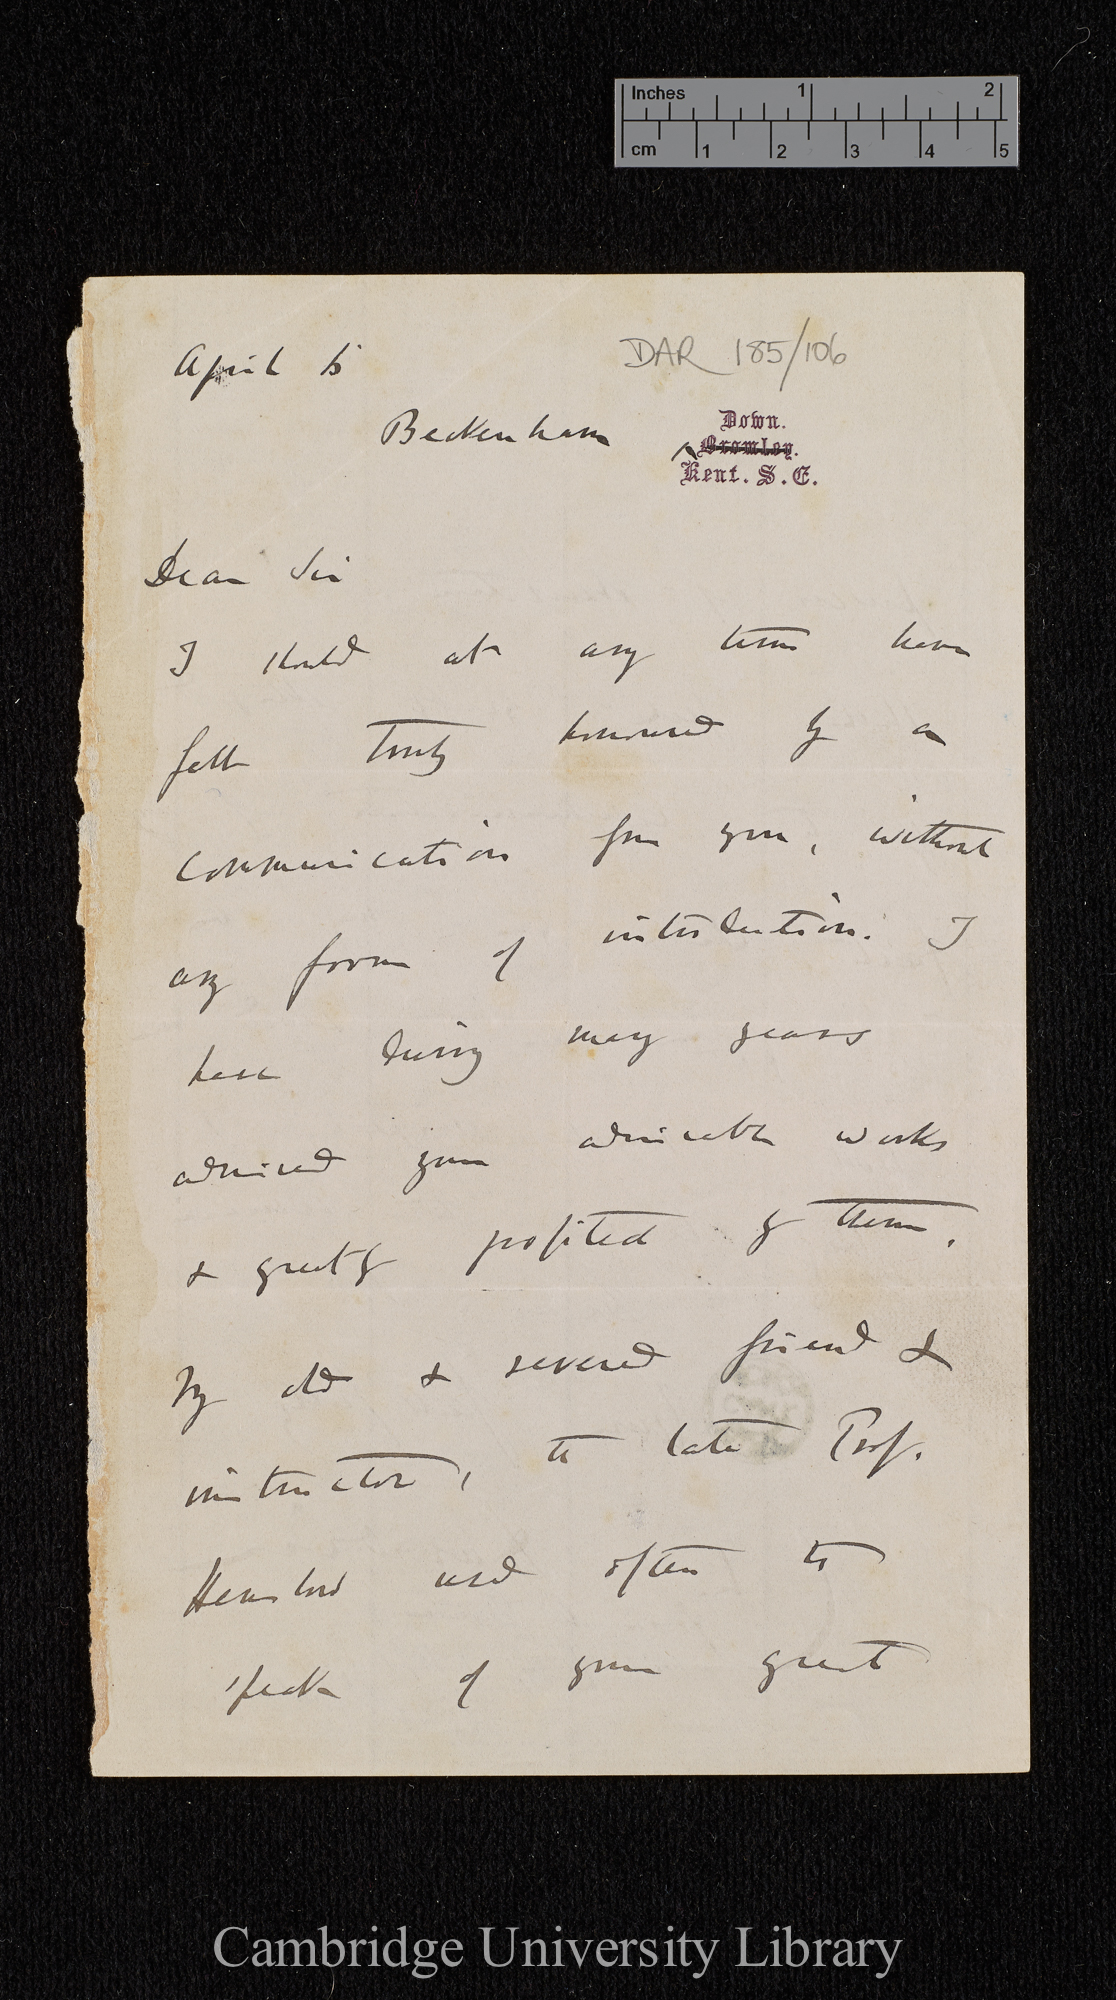 Inches 1 2
cm 1 2 3 4 5
DAR 185/106
April 15
Down.
Beckenham
Bromley.
Kent. S.E.
Dear Sir
I should at any time have
felt truly honoured by a
communication from you, without
any form of introduction. I
have during many years
admired your admirable works
& greatly profited by them.
My old & revered friend &
instructor, the late Prof.
Henslow used often to
speak of your great
Cambridge University Library